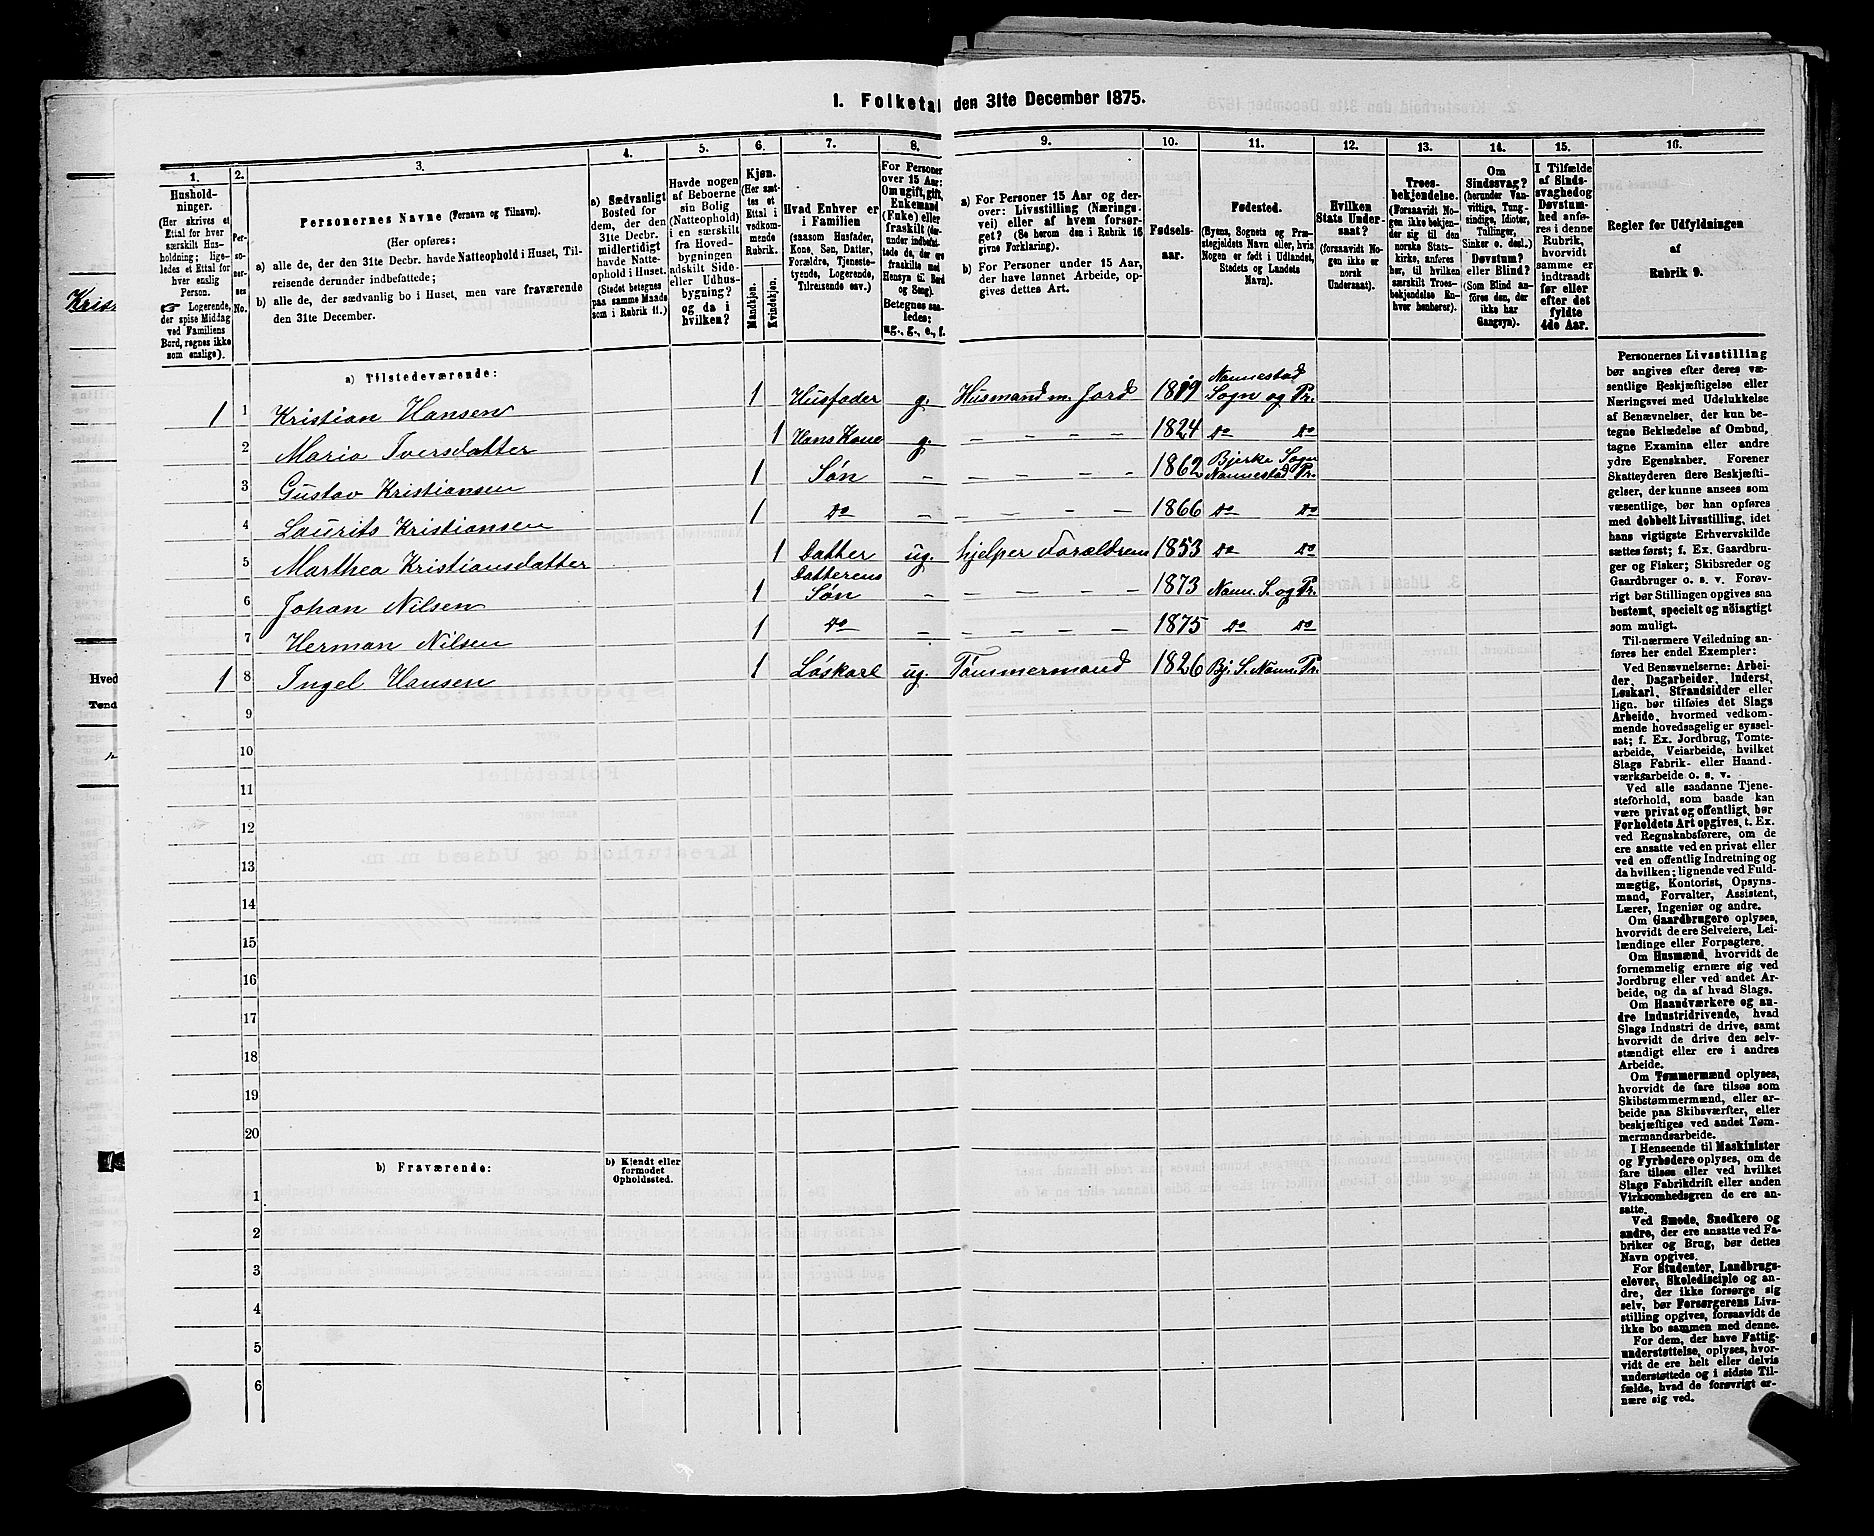 I. Folketal den 31te December 1875.
1.
2.
3.
4.
5.
6.
7.
8.
9.
10.
11.
12.
13.
14.
15.
16.
Hushold-
ninger.
(Her skrives et
Ettal for hver
særskilt Hus-
holdning; lige-
ledes et Ettal for
hver enslig
Person.
☞ Logerende,
der spise Middag
ved Familiens
Bord, regnes ikke
som enslige).
Per-
so-
ner-
nes
No.
Personernes Navne (Fornavn og Tilnavn).
(Her opføres:
a) alle de, der den 31te Decbr. havde Natteophold i Huset, Til-
reisende derunder indbefattede;
b) alle de, der sædvanlig bo i Huset, men vare fraværende
den 31te December.
a) Sædvanligt
Bosted for
dem, der den
31te Decbr.
midlertidigt
havde Natte-
ophold i Huset.
(Stedet betegnes
paa samme Maade
som i Rubrik 11.)
Havde nogen
af Beboerne
sin Bolig
(Natteophold)
i en særskilt
fra Hoved-
bygningen
adskilt Side-
eller Udhus-
bygning?
og da i
hvilken?
Kjøn.
(Her sæt-
tes et
Ettal i
vedkom-
mende
Rubrik.
Mandkjøn.
Kvindekjøn.
Hvad Enhver er
i Familien
(saasom Husfader,
Kone, Søn, Datter,
Forældre, Tjeneste-
tyende, Logerende,
Tilreisende osv.)
For Personer
over 15 Aar:
Om ugift, gift,
Enkemand
(Enke) eller
fraskilt (der-
under indbefat-
tede de, der ere
fraskilte med
Hensyn til Bord
og Seng).
Betegnes saa-
ledes:
ug., g., e., f.
a) For Personer 15 Aar og der-
over: Livsstilling (Nærings-
vei) eller af hvem forsør-
get? (Se herom des i Rubrik 16
givne Forklaring).
b) For Personer under 15 Aar,
der have lønnet Arbeide, op-
gives dettes Art.
Fødsels-
aar.
Fødested.
(Byens, Sognets og Præ-
stegjeldets Navn eller, hvis
Nogen er født i Udlandet,
Stedets og Landets
Navn).
Hvilken
Stats Under-
saat?
(forsaavidt No-
gen ikke er
norsk
Undersaat).
Troes-
bekjendelse.
(Forsaavidt No-
gen ikke bekjen-
der sig til den
norske Stats-
kirke, anføres
her, til hvilken
særskilt Troes-
bekjendelse En-
hver henhører).
Om
Sindssvag?
(herunder Van-
vittige, Tung-
sindige, Idioter,
Tullinger,
Sinker o. desl.)
Døvstum?
eller Blind?
(Som Blind an-
føres den, der
ikke har
Gangsyn).
I Tilfælde
af Sinds-
svaghed og
Døvstum-
hed anfø-
res i denne
Rubrik,
hvorvidt
samme er
indtraadt
før eller
efter det
fyldte
4de Aar.
Regler for Udfyldningen
af
Rubrik 9.
Kris
a) Tilstedeværende:
1 1 Kristian Hansen 1 Husfader g. Husmand m. Jord 1819 Nannestad
Sogn og Pr.
2 Maria Iversdatter 1 Hans Kone g. – – – – 1824 do do
3 Gustav Kristiansen 1 Søn – – – – – 1862 Bjerke Sogn
Nannestad Pr.
4 Laurits Kristiansen 1 do – – – – – 1866 do do
5 Marthea Kristiansdatter 1 Datter ug. hjelper Forældrene 1853 do do
6 Johan Nilsen 1 Datterens
Søn – – – – – 1873 Nann. S. og Pr.
7 Herman Nilsen 1 do – – – – – 1875 do do
1 8 Ingel Hansen 1 Løskarl ug. Tømmermand 1826 Bj. S. Nann. Pr.
9
10
11
12
13
14
15
16
17
18
19
20
b) Fraværende:
b) Kjendt eller
formodet
Opholdssted.
1
2
3
4
5
6
Hved
Tønd
Personernes Livsstilling
bør angives efter deres væ-
sentlige Beskjæftigelse eller
Næringsvei med Udelukkelse
af Benævnelser, der kun be-
tegne Beklædelse af Ombud,
tagne Examina eller andre
ydre Egenskaber. Forener
Skatteyderen flere Beskjæfti-
gelser, der kunne ansees som
væsentlige, bør han opføres
med dobbelt Livsstilling, idet
hans vigtigste Erhvervskilde
sættes først; f. Ex. Gaardbru-
ger og Fisker; Skibsreder og
Gaardbruger o. s. v. Forøv-
rigt bør Stillingen opgives saa
bestemt, specielt og nøiagtigt
som muligt.
Til nærmere Veiledning an-
føres her endel Exempler:
Ved Benævnelserne: Arbei-
der, Dagarbeider, Inderst,
Løskarl, Strandsidder eller
lign. bør tilføies det Slags
Arbeide, hvormed vedkom-
mende hovedsagelig er syssel-
sat; f. Ex. Jordbrug, Tomte-
arbeide, Veiarbeide, hvilket
Slags Fabrik- eller Haand-
værksarbeide o. s. v.
Ved alle saadanne Tjene-
steforhold, som baade kan
være privat og offentligt, bør
Forholdets Art opgives, t. Ex.
ved Regnskabsførere, om de
ere ansatte ved en privat eller
ved en offentlig Indretning og
da hvilken; lignende ved Fuld-
mægtig, Kontorist, Opsyns-
mand, Forvalter, Assistent,
Lærer, Ingeniør og andre.
Om Gaardbrugere oplyses,
hvorvidt de ere Selveiere, Lei-
lændinge eller Forpagtere.
Om Husmænd, hvorvidt de
fornemmelig ernære sig ved
Jordbrug eller ved andet Ar-
beide, og da af hvad Slags.
Om Haandværkere og an-
dre Industridrivende, hvad
Slags Industri de drive, samt
hvorvidt de drive den selv-
stændigt eller ere i andres
Arbeide.
Om Tømmermænd oplyses,
hvorvidt de fare tilsøs som
Skibstømmermænd, eller ar-
beide paa Skibsværfter, eller
beskjæftiges ved andet Tøm-
mermandsarbeide.
I Henseende til Maskinister
og Fyrbødere oplyses, om de
fare tilsøs eller ved hvilket
Slags Fabrikdrift eller anden
Virksomhedsgren de ere an-
satte.
Ved Smede, Snedkere og
andre, der ere ansatte ved Fa-
briker og Brug, bør dettes
Navn opgives.
For Studenter, Landbrugs-
elever, Skoledisciple og an-
dre, der ikke forsørge sig
selv, bør Forsørgerens Livs-
stilling opgives, forsaavidt de
ikke bo sammen med denne.
For dem, der have Fattig-
understøttelse, oplyses, hvor-
vidt de ere helt eller delvis
understøttede og i sidste Til-
fælde, hvad de forøvrigt er-
nære sig ved.